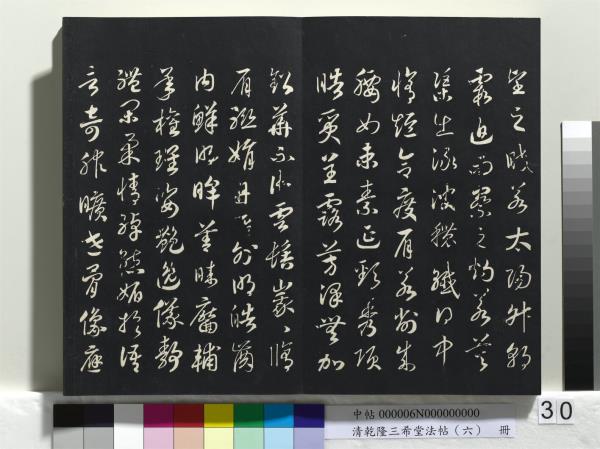 望之皎若太陽升朝
霞迫而察之灼若芙
蕖出淥波穠纖得中
脩短合度肩若削成
腰如束素延頸秀項
皓質呈露芳澤無加
鉛華不御雲髻峩〻脩
眉聯娟丹脣外朗皓齒
內鮮明眸善睞靨輔
承權瓌姿艷逸儀靜
體閑柔情綽態媚於語
言奇服曠世骨像應
中帖 000006N000000000
清乾隆三希堂法帖（六） 冊
30